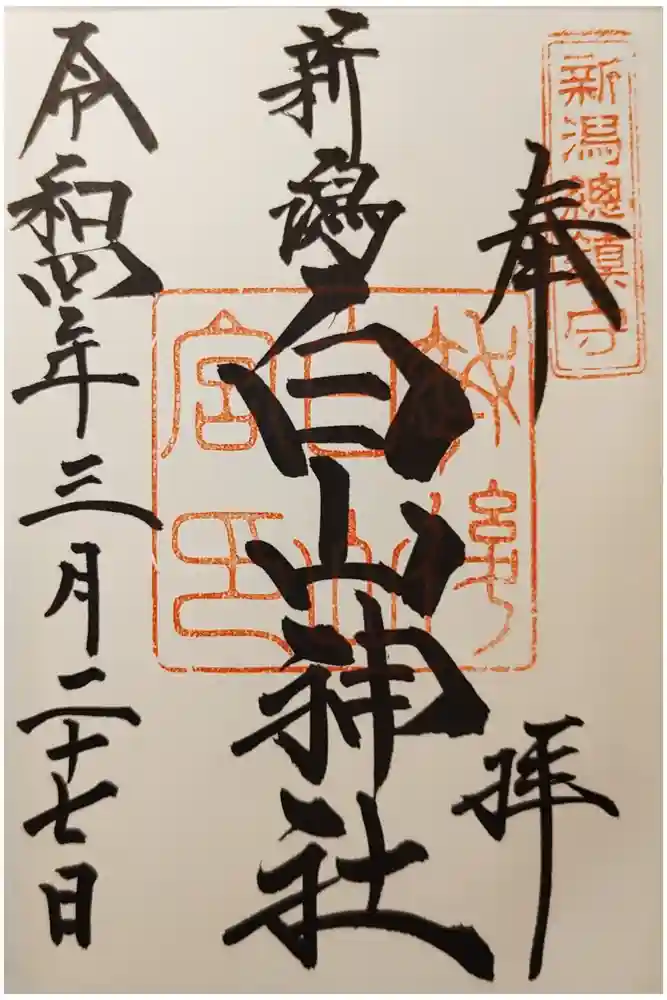 奉拝
新潟總鎮守
新潟白山神社
令和四年三月二十七日